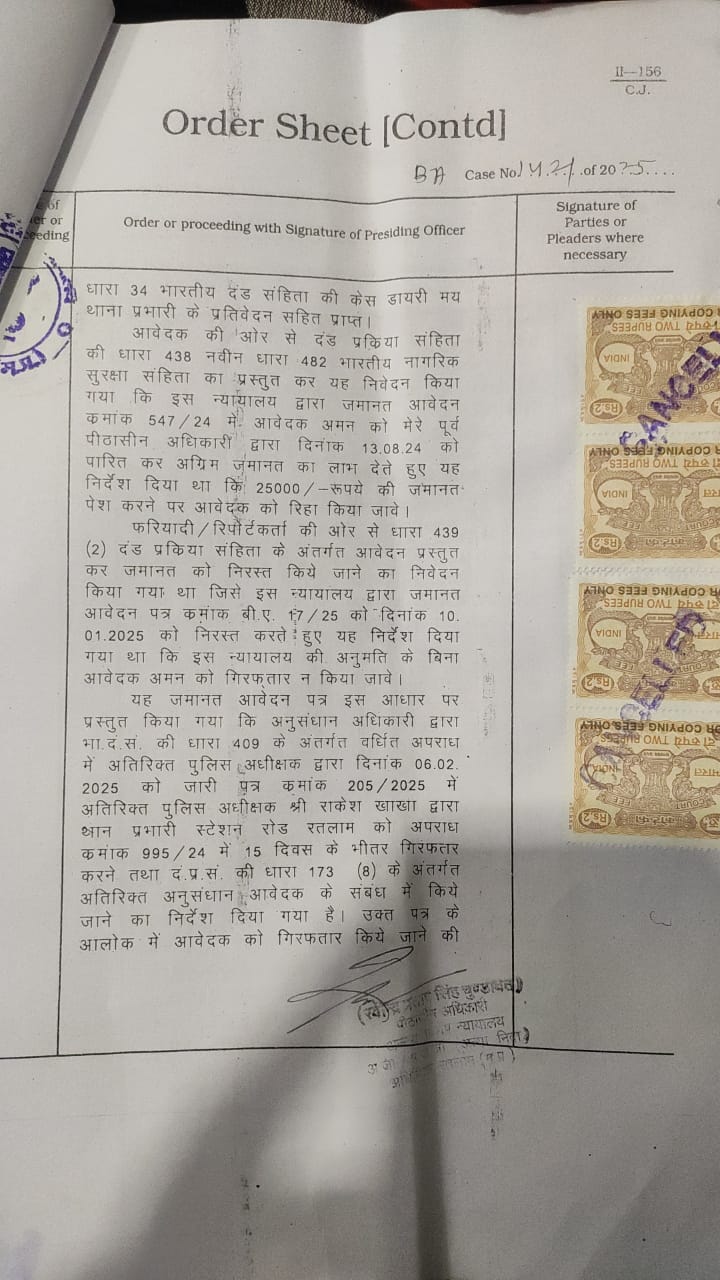 II—156
C.J.
Order Sheet [Contd]
BA Case No. of 2025....
of
er or
ceeding
Order or proceeding with Signature of Presiding Officer
Signature of
Parties or
Pleaders where
necessary
धारा 34 भारतीय दंड संहिता की केस डायरी मय
थाना प्रभारी के प्रतिवेदन सहित प्राप्त।
आवेदक की ओर से दंड प्रकिया संहिता
की धारा 438 नवीन धारा 482 भारतीय नागरिक
सुरक्षा संहिता का प्रस्तुत कर यह निवेदन किया
गया कि इस न्यायालय द्वारा जमानत आवेदन
कमांक 547/24 में आवेदक अमन को मेरे पूर्व
पीठासीन अधिकारी द्वारा दिनांक 13.08.24 को
पारित कर अग्रिम जमानत का लाभ देते हुए यह
निर्देश दिया था कि 25000/-रूपये की जमानत
पेश करने पर आवेदक को रिहा किया जावे।
फरियादी/रिपोर्टकर्ता की ओर से धारा 439
(2) दंड प्रकिया संहिता के अंतर्गत आवेदन प्रस्तुत
कर जमानत को निरस्त किये जाने का निवेदन
किया गया था जिसे इस न्यायालय द्वारा जमानत
आवेदन पत्र कमांक बी.ए. 17/25 को दिनांक 10.
01.2025 को निरस्त करते हुए यह निर्देश दिया
गया था कि इस न्यायालय की अनुमति के बिना
आवेदक अमन को गिरफ्तार न किया जावे।
यह जमानत आवेदन पत्र इस आधार पर
प्रस्तुत किया गया कि अनुसंधान अधिकारी द्वारा
भा.दं.सं. की धारा 409 के अंतर्गत वर्धित अपराध
में अतिरिक्त पुलिस अधीक्षक द्वारा दिनांक 06.02.
2025 को जारी पत्र कमांक 205/2025 में
अतिरिक्त पुलिस अधीक्षक श्री राकेश खाखा द्वारा
थान प्रभारी स्टेशन रोड रतलाम को अपराध
कमांक 995/24 में 15 दिवस के भीतर गिरफतार
करने तथा दं.प्र.सं. की धारा 173 (8) के अंतर्गत
अतिरिक्त अनुसंधान आवेदक के संबंध में किये
जाने का निर्देश दिया गया है। उक्त पत्र के
आलोक में आवेदक को गिरफ्तार किये जाने की
सिंह चुण्डावत)
अधिकारी
न्यायालय
FOR COPYING FEES ONLY
TWO RUPEES
INDIA
COURT FEE
Rs.2
CANCELLED
FOR COPYING FEES ONLY
TWO RUPEES
INDIA
Rs.2
FOR COPYING FEES ONLY
TWO RUPEES
INDIA
Rs.2
CANCELLED
FOR COPYING FEES ONLY
TWO RUPEES
INDIA
COURT FEE
Rs.2